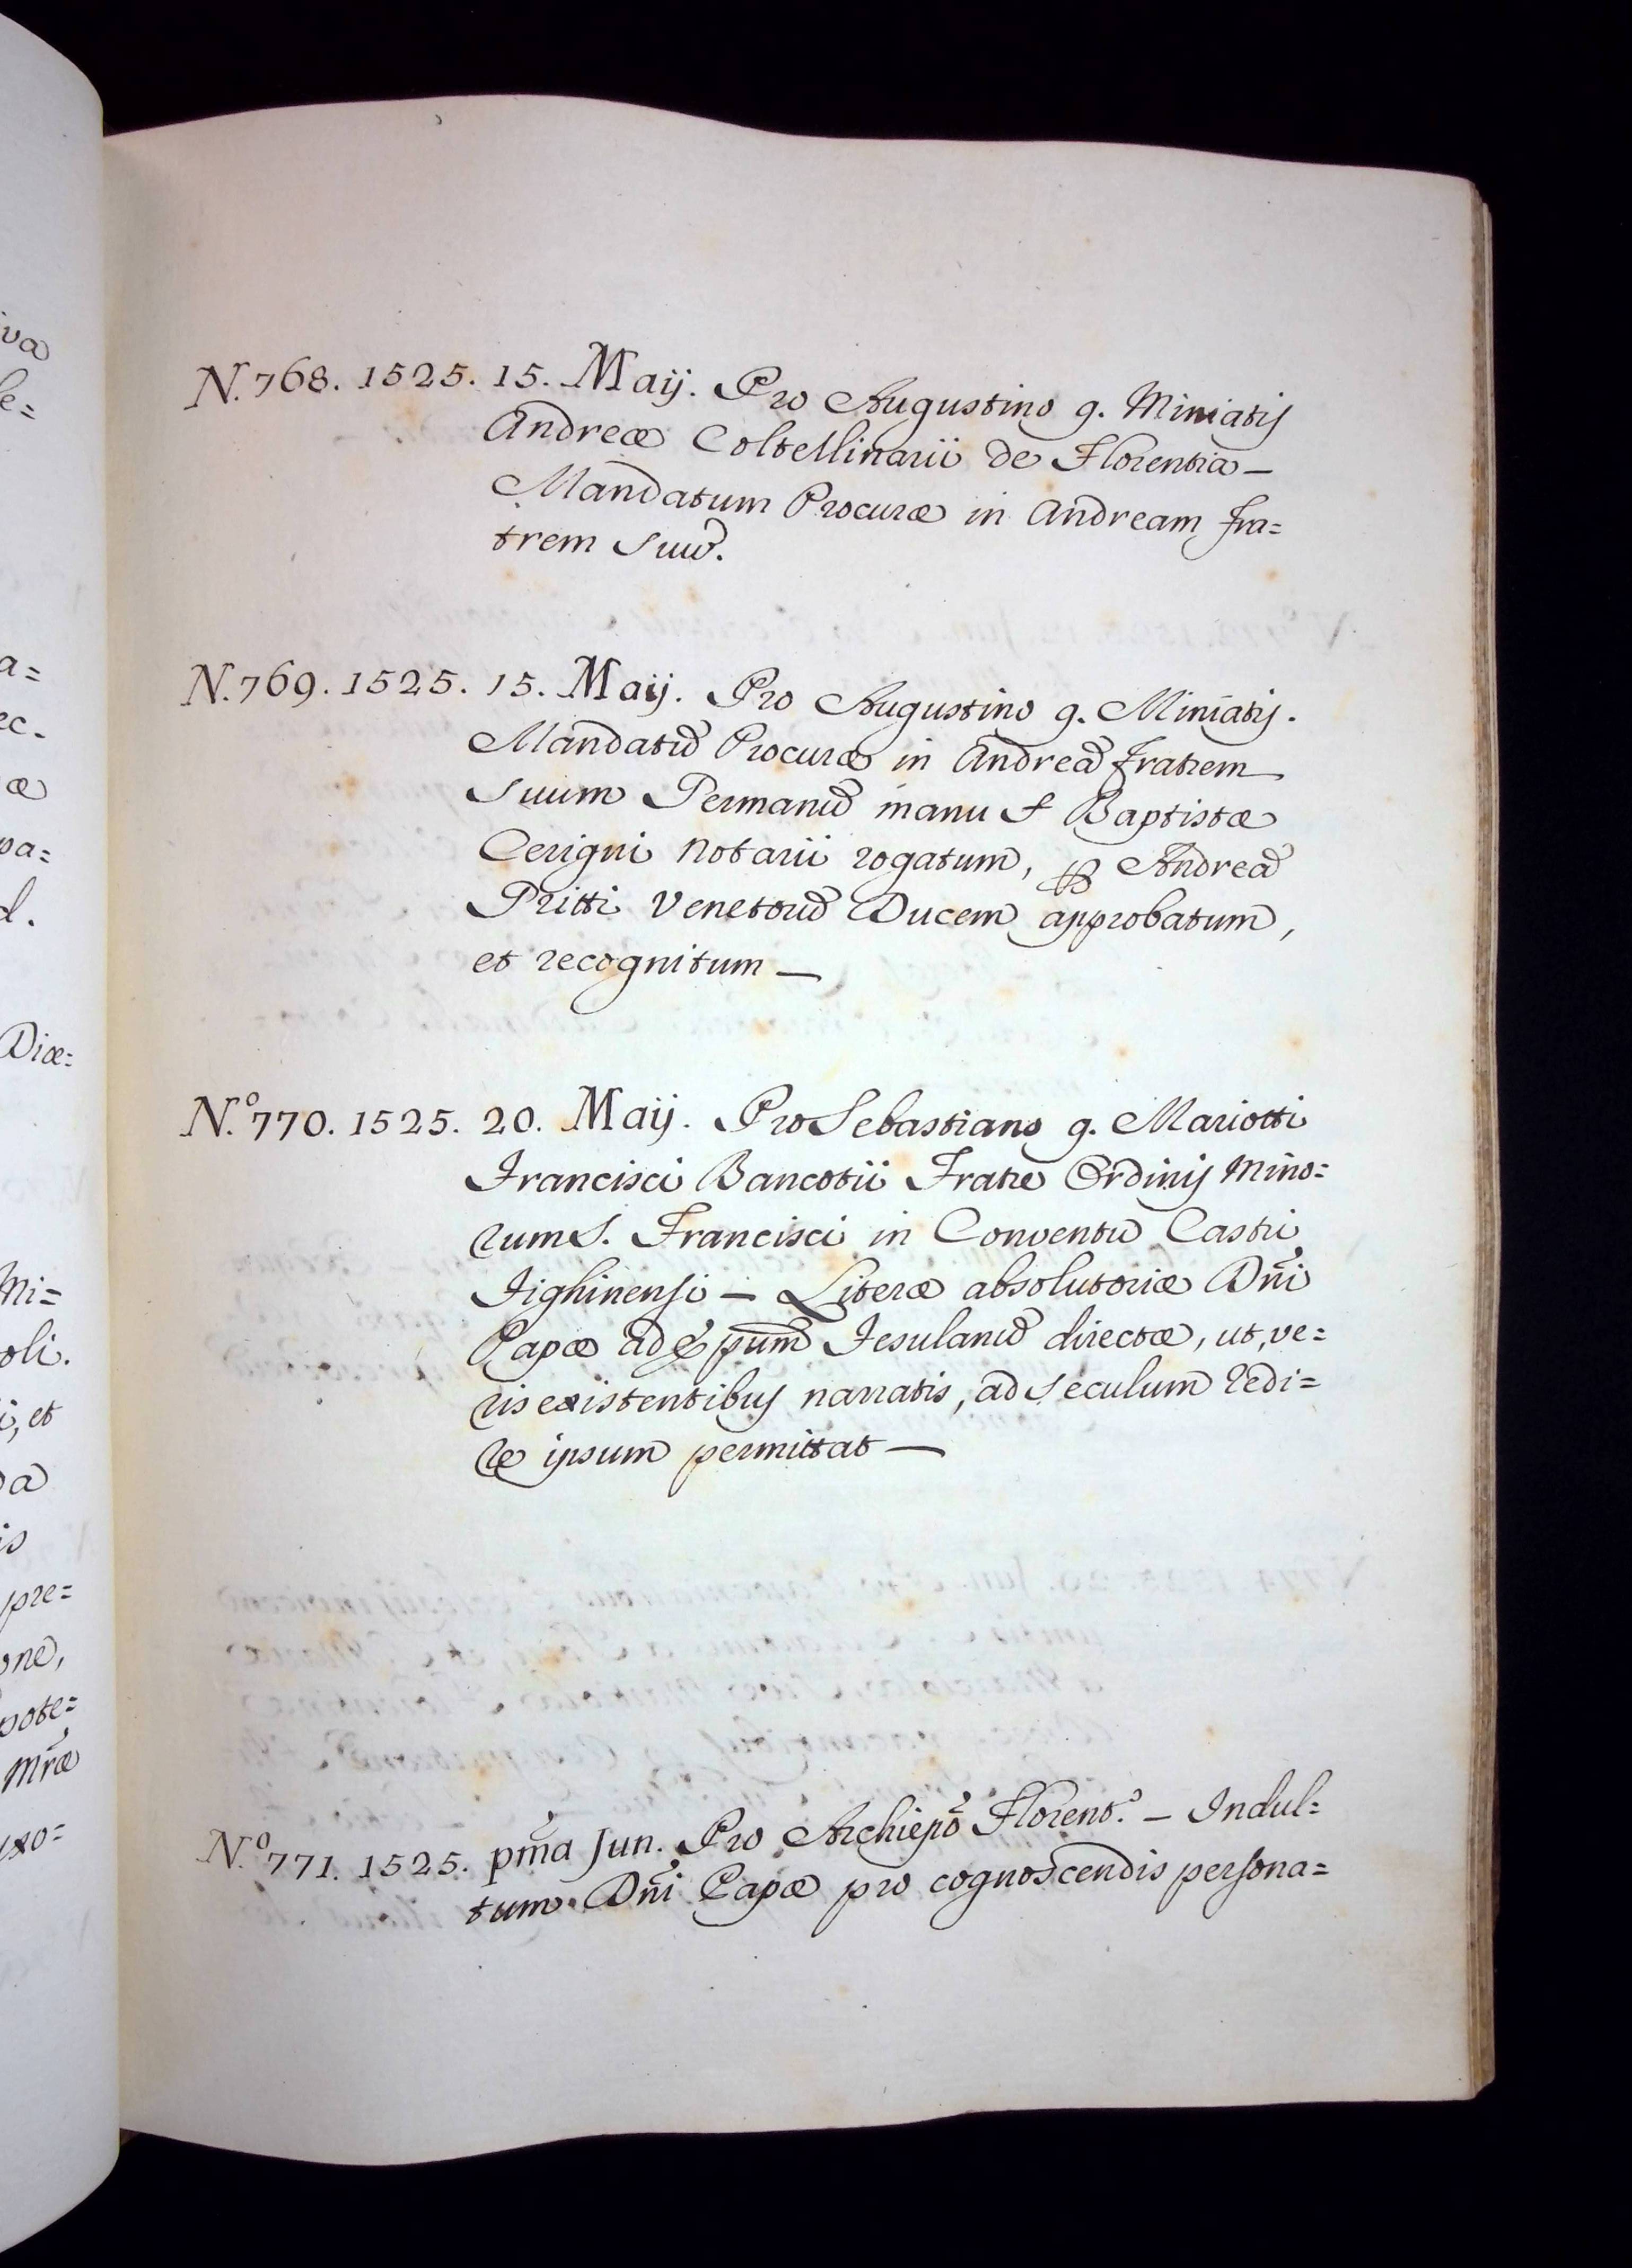 va
le=
a=
ec.
æ
pa=
d.
Diæ=
Mi=
oli.
i, et
a
is
pre=
one,
pote=
Mræ
uxo=
N. 768. 1525. 15. Maij. Pro Augustino q. Miniatis
Andreæ Coltellinarii de Florentia —
Mandatum Procuræ in Andream fra=
trem suũ.
N. 769. 1525. 15. Maij. Pro Augustino q. Miniatis.
Mandatũ Procuræ in Andreã fratrem
suum Germanũ manu S Baptistæ
Cerigni Notarii rogatum, p Andreã
Gritti Venetorũ Ducem approbatum,
et recognitum —
N.º 770. 1525. 20. Maij. Pro Sebastiano q. Mariotti
Francisci Bancotii Fratre Ordinis Mino=
rum S. Francisci in Conventu Castri
Fighinensi — Literæ absolutoriæ Dñi
Papæ ad Epũm Fesulanũ directæ, ut, ve=
ris existentibus narratis, ad seculum redi=
re ipsum permittat —
N.º 771. 1525. pm̃a Jun. Pro Archiepõ Florent.º — Indul=
tum Dñi Papæ pro cognoscendis persona=